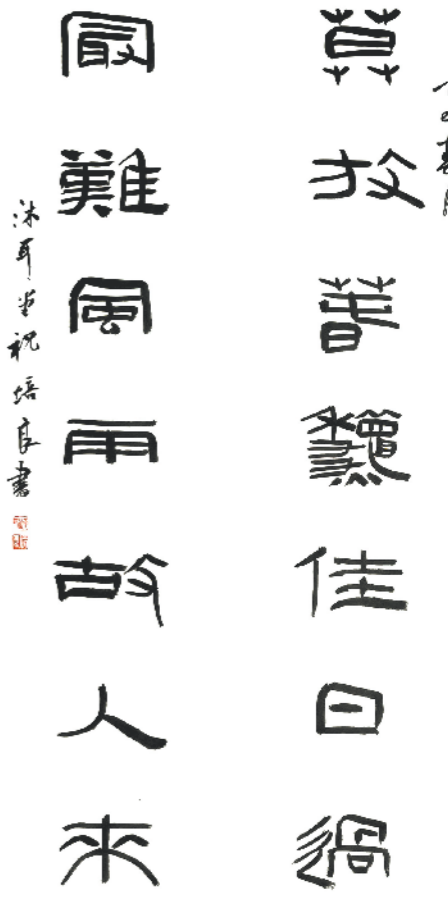 莫放春秋佳日過
最難風雨故人來
沐耳堂祝培良書